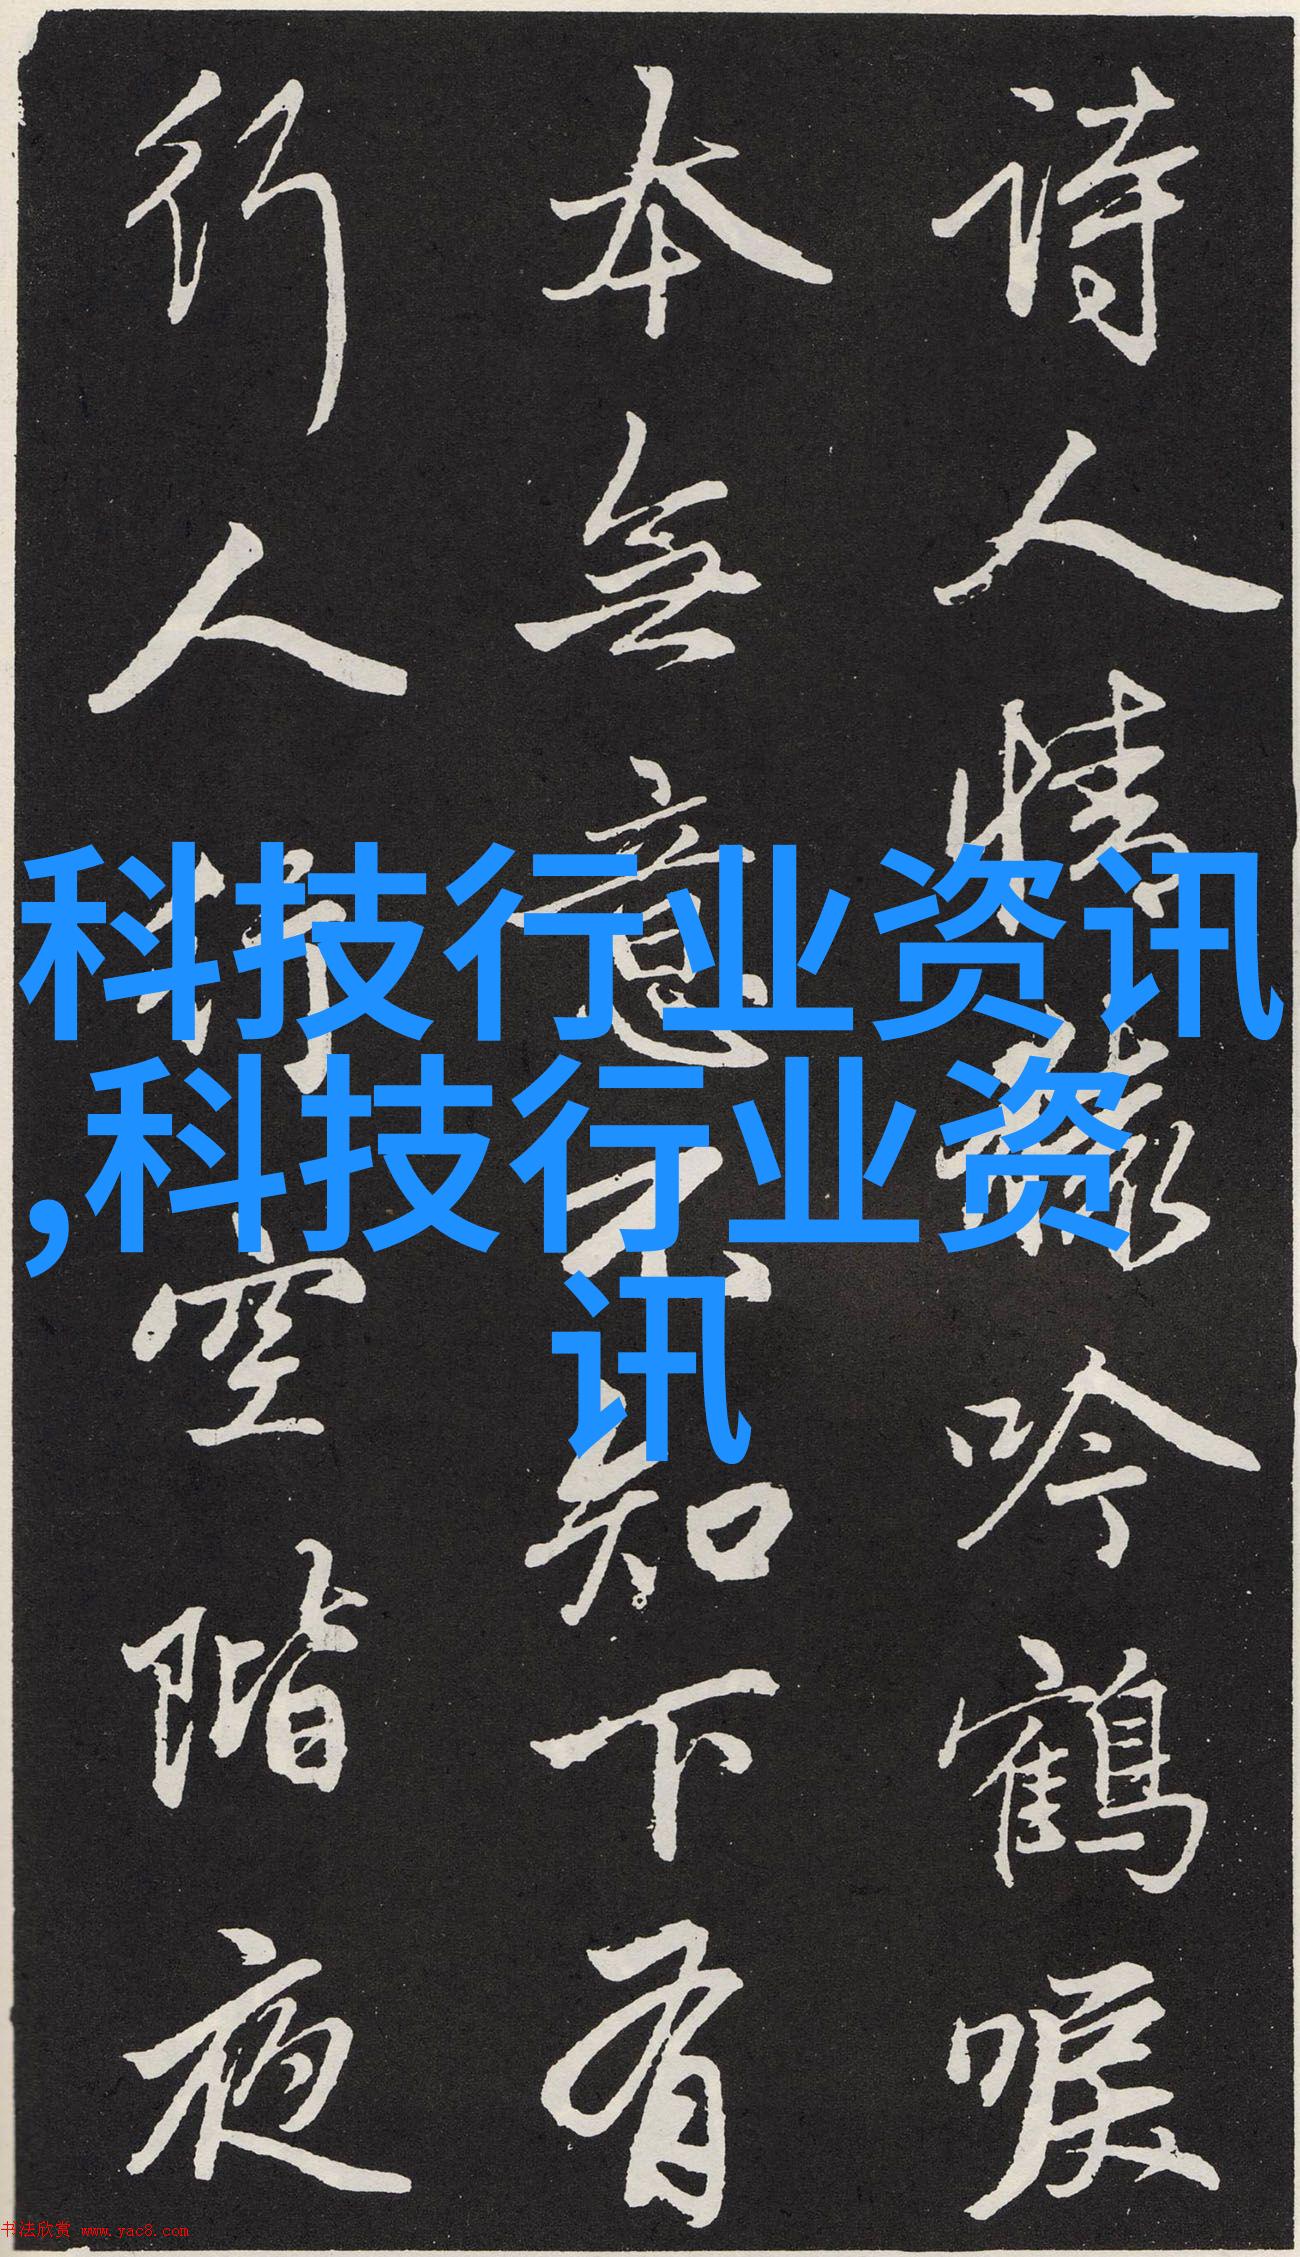 诗人情猿吟鶴唳
本無意不知下有
行人行空階夜
科技行业资讯
,科技行业资
讯
书法欣赏 www.yac8.com